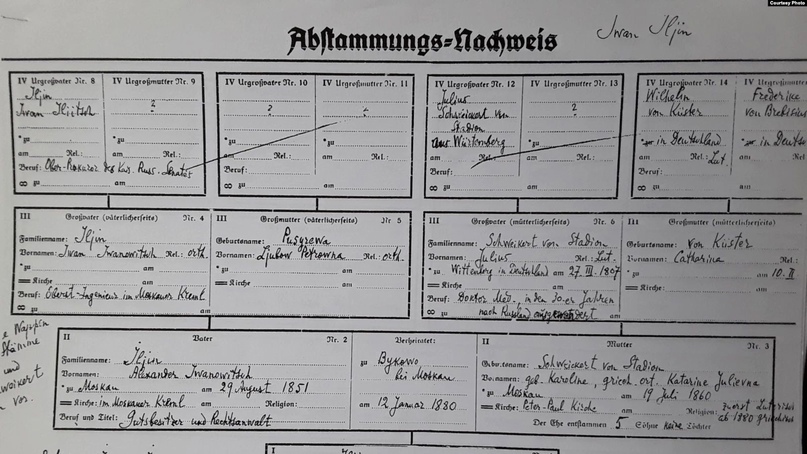 Courtesy Photo
Abstammungs=Nachweis
Iwan Iljin
IV Urgroßvater Nr. 8
Iljin
Iwan Iliitsch
* zu
am Rel.:
Beruf: Ober-Prokuror des Kais. Russ. Senates
∞ zu am
IV Urgroßmutter Nr. 9
?
* zu
am Rel.:
IV Urgroßvater Nr. 10
?
* zu
am Rel.:
Beruf:
∞ zu am
IV Urgroßmutter Nr. 11
* zu
am Rel.:
IV Urgroßvater Nr. 12
Julius
Schweickert von
Stadion
aus Würtemberg
am Rel.:
Beruf:
∞ zu am
IV Urgroßmutter Nr. 13
?
* zu
am Rel.:
IV Urgroßvater Nr. 14
Wilhelm
von Küster
in Deutschland
am Rel.: Lut.
Beruf:
∞ zu am
IV Urgroßmutter
Frederike
von
in
am
III Großvater (väterlicherseits) Nr. 4
Familienname: Iljin
Vornamen: Iwan Iwanowitsch Rel.: orth.
* zu am
Kirche am
Beruf: Oberst-Ingenieur im Moskauer Kreml
∞ zu am
III Großmutter (väterlicherseits) Nr. 5
Geburtsname: Pusyrewa
Vornamen: Ljubow Petrowna Rel.: orth.
* zu am
Kirche am
III Großvater (mütterlicherseits) Nr. 6
Familienname: Schweikert von Stadion
Vornamen: Julius Rel.: Lut.
* zu Wittenberg in Deutschland am 27. III. 1807
Kirche am
Beruf: Doktor Med., in den 30-er Jahren
nach Russland ausgewandert
∞ zu am
III Großmutter (mütterlicherseits)
Geburtsname: von Küster
Vornamen: Catharina
* zu am 10. II
Kirche: am
Wappen
Stämme
und
von.
II Vater Nr. 2
Familienname: Iljin
Vornamen: Alexander Iwanowitsch
* zu Moskau am 29 August 1851
Kirche: im Moskauer Kreml am Religion:
Beruf und Titel: Gutsbesitzer und Rechtsanwalt
Verheiratet:
zu Bykowo
bei Moskau
am 12 Januar 1880
II Mutter Nr. 3
Familienname: Schweickert von Stadion
Vornamen: geb. Karoline, griech. ort. Katarine Julievna
* zu Moskau am 19 Juli 1860
Kirche: Peter-Paul Kirche am Religion: zuerst Luterisch
ab 1880 griechisch
Der Ehe entstammen 5 Söhne keine Töchter
I